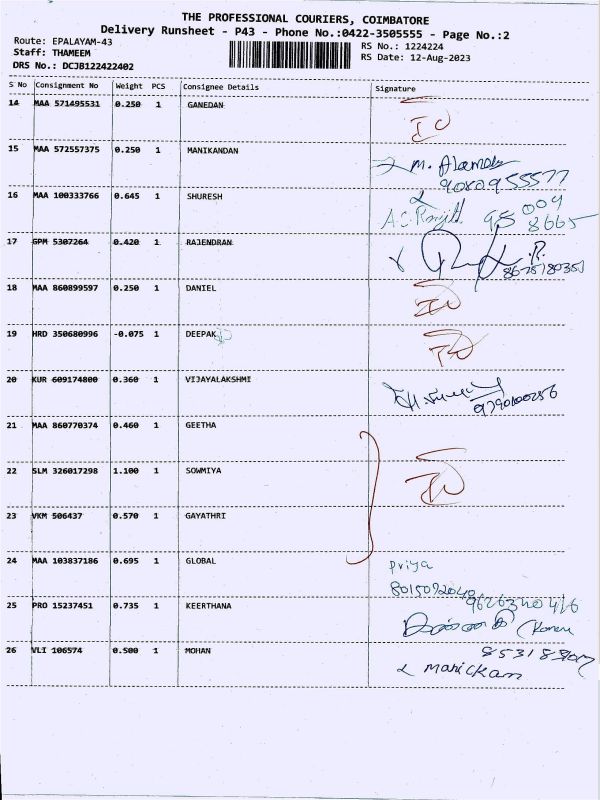 THE PROFESSIONAL COURIERS, COIMBATORE
Delivery Runsheet - P43 - Phone No.:0422-3505555 - Page No.:2
Route: EPALAYAM-43
RS No.: 1224224
Staff: THAMEEM
RS Date: 12-Aug-2023
DRS No.: DCJB122422402
S No Consignment No Weight PCS Consignee Details Signature
14 MAA 571495531 0.250 1 GANEDAN
15 MAA 572557375 0.250 1 MANIKANDAN
16 MAA 100333766 0.645 1 SHURESH
17 GPM 5307264 0.420 1 RAJENDRAN
18 MAA 860899597 0.250 1 DANIEL
19 HRD 350680996 -0.075 1 DEEPAK
20 KUR 609174800 0.360 1 VIJAYALAKSHMI
9790100256
21 MAA 860770374 0.460 1 GEETHA
22 SLM 326017298 1.100 1 SOWMIYA
23 VKM 506437 0.570 1 GAYATHRI
24 MAA 103837186 0.695 1 GLOBAL
Priya
25 PRO 15237451 0.735 1 KEERTHANA
26 VLI 106574 0.500 1 MOHAN
Manickam